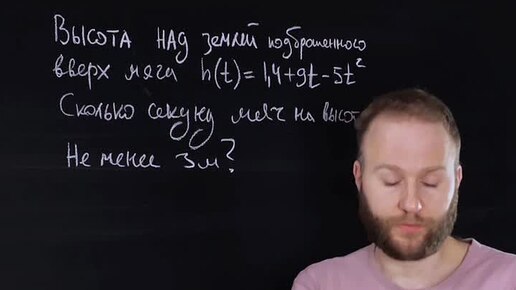 Высота над землей подброшенного
вверх мяча h(t)=1,4+9t-5t²
Сколько секунд мяч на высот
Не менее 3м?